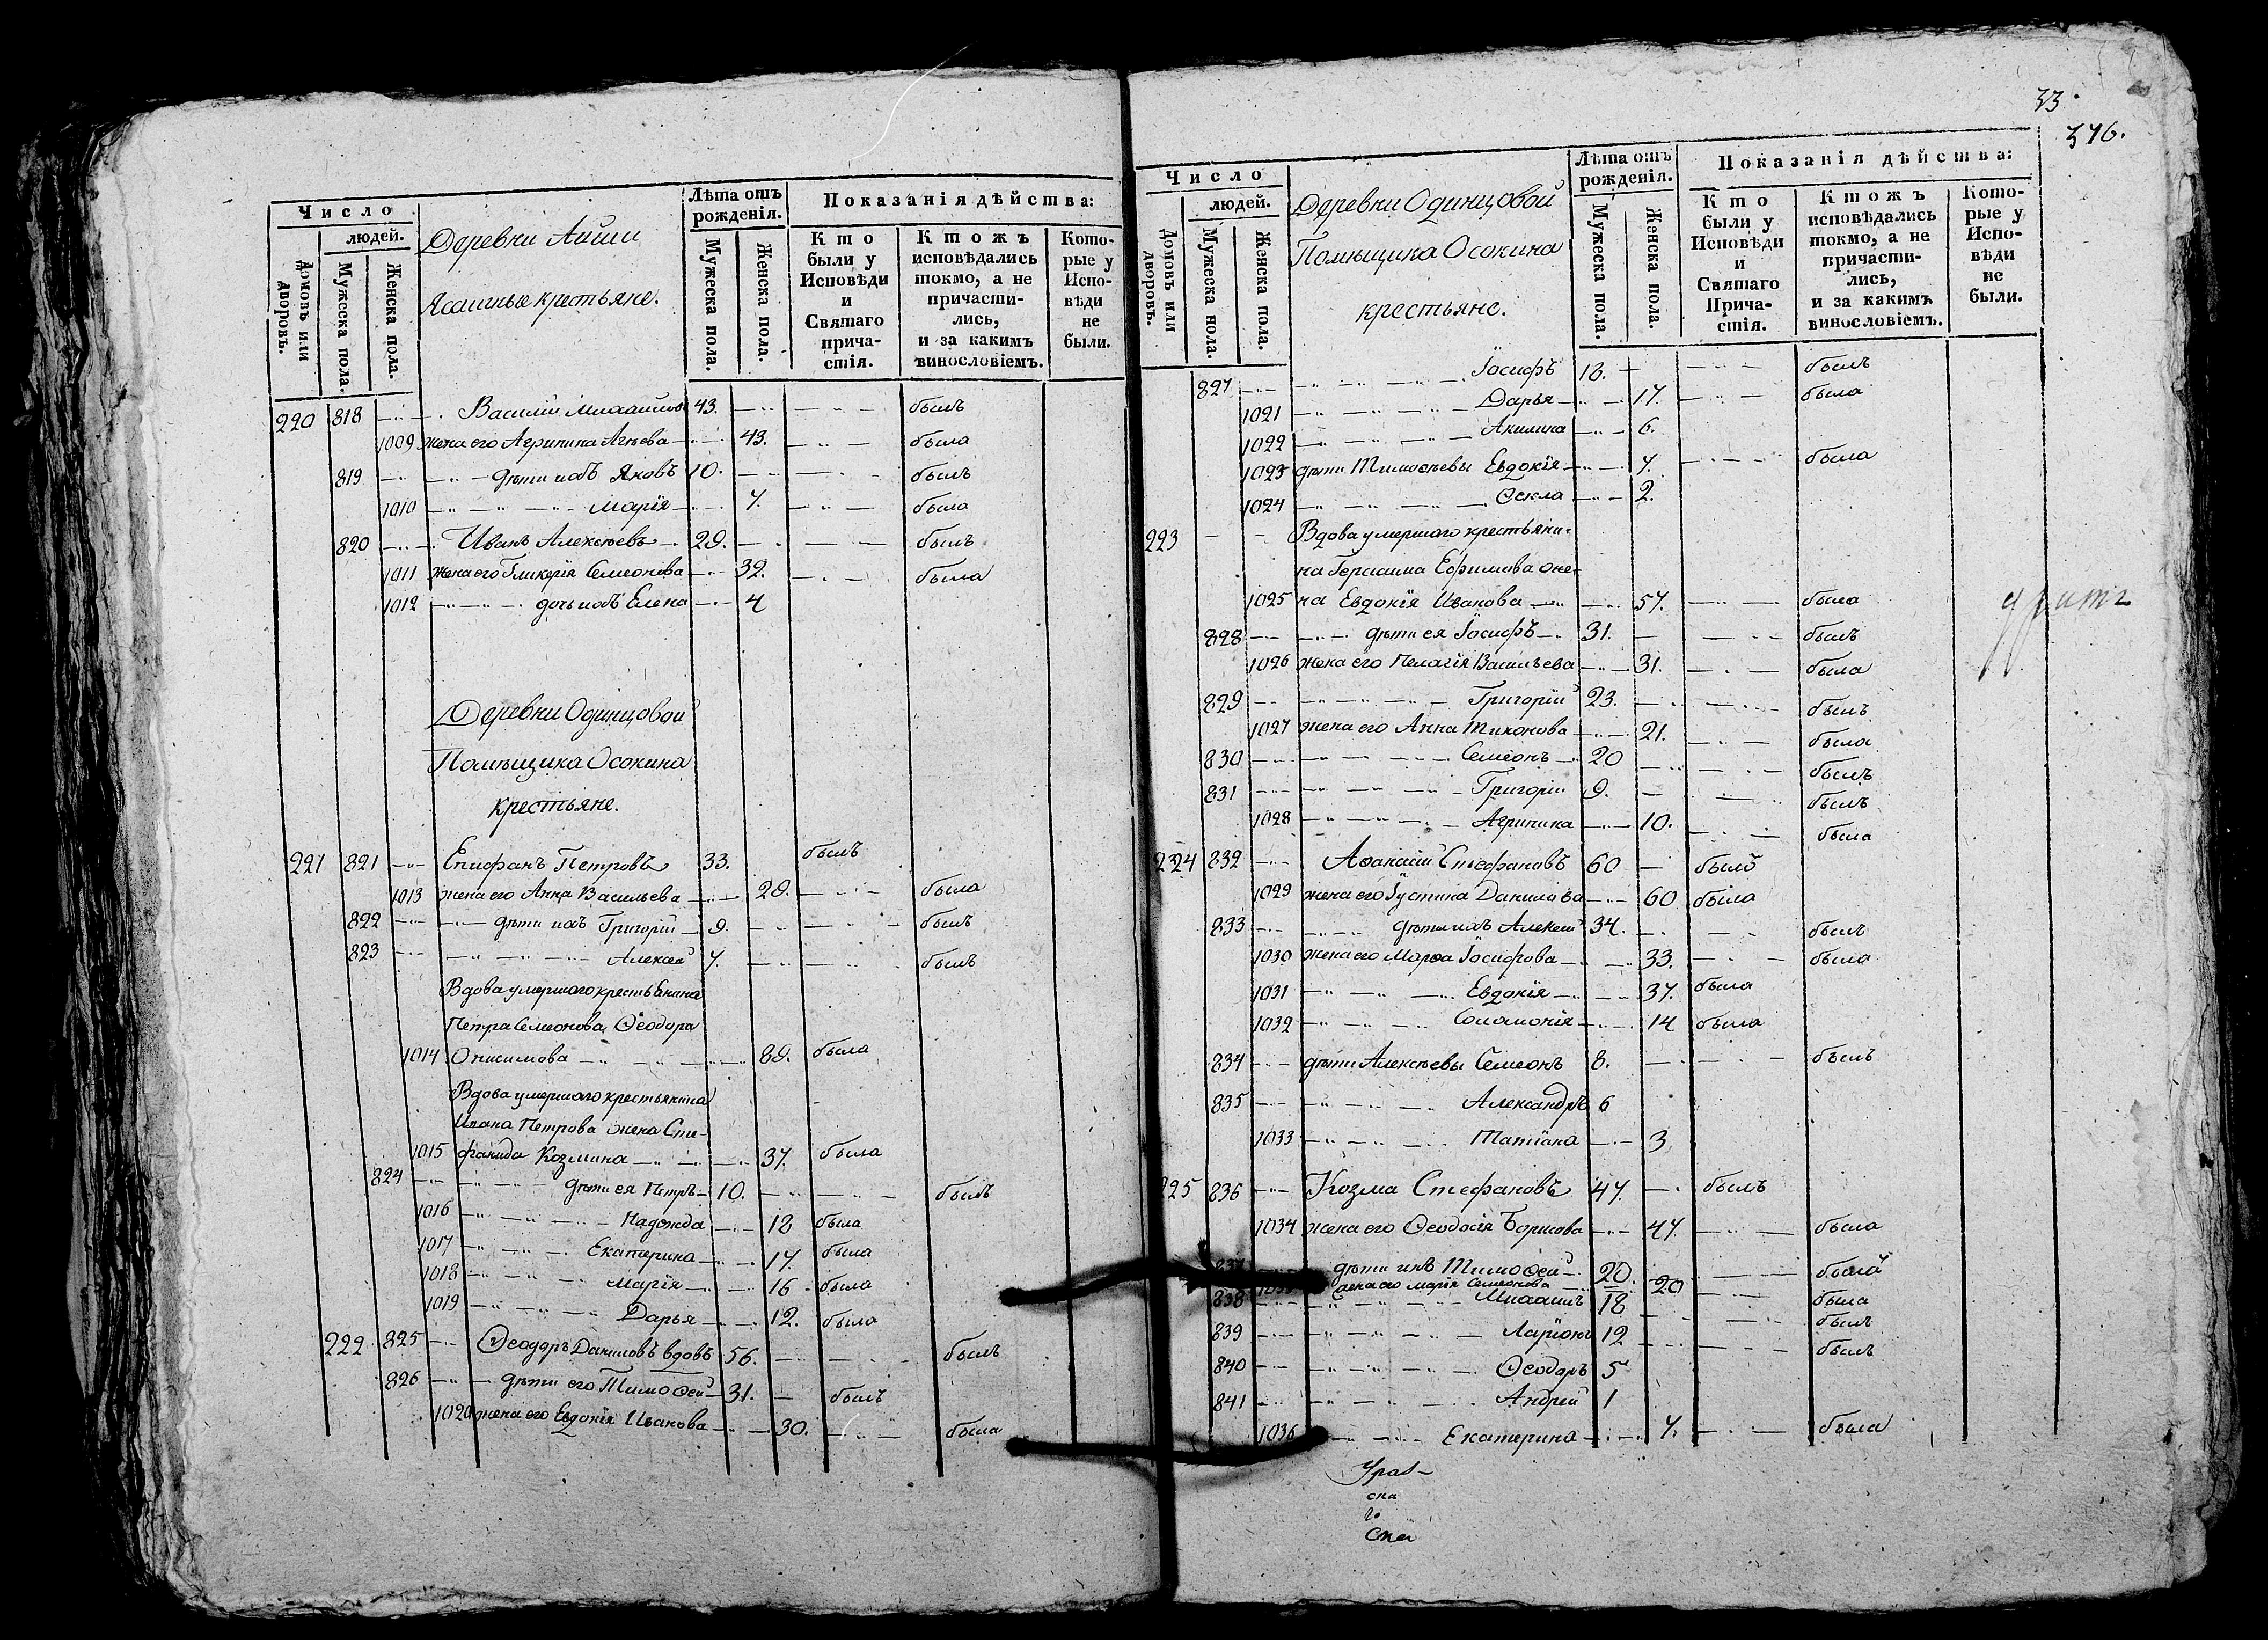 Число
людей.
Домовъ или дворовъ.
Мужеска пола.
Женска пола.
Деревни Айши
Ясашные крестьяне.
Лѣта отъ рожденія.
Мужеска пола.
Женска пола.
Показанія дѣйства:
Кто были у Исповѣди и Святаго причастія.
Ктожъ исповѣдались токмо, а не причастились, и за какимъ винословіемъ.
Которые у Исповѣди не были.
220 818 Василій Михайловъ 43. былъ
1009 жена его Агрипина 43. была
819 дѣти ихъ Яковъ 10. былъ
1010 Марія 7. была
820 Иванъ Алексѣевъ 29. былъ
1011 Жена его Гликерія Семенова 32. была
1012 дочь ихъ Елена 4
Деревни Одинцовой
Помѣщика Осокина
крестьяне.
221 821 Епифанъ Петровъ 33. былъ
1013 жена его Анна Васильева 29. была
822 дѣти ихъ Григорій 9. былъ
823 Алексей 7. былъ
Вдова умершаго крестьянина
Петра Семенова Ѳеодора
1014 Онисимова 89. была
Вдова умершаго крестьянина
Ивана Петрова жена Сте-
1015 фанида Козмина 37. была
824 дѣти ея Петръ 10. былъ
1016 Надежда 18 была
1017 Екатерина 17. была
1018 Марія 16 была
1019 Дарья 12. была
222 825 Ѳеодоръ Даниловъ вдовъ 56. былъ
826 дѣти его Тимоѳей 31. былъ
1020 жена его Евдокія Иванова 30. была
33.
376.
Число
людей.
Домовъ или дворовъ.
Мужеска пола.
Женска пола.
Деревни Одинцовой
Помѣщика Осокина
крестьяне.
Лѣта отъ рожденія.
Мужеска пола.
Женска пола.
Показанія дѣйства:
Кто были у Исповѣди и Святаго Причастія.
Ктожъ исповѣдались токмо, а не причастились, и за какимъ винословіемъ.
Которые у Исповѣди не были.
827 Іосифъ 18. былъ
1021 Дарья 17. была
1022 Акилина 6.
1023 дѣти Тимоѳѣевы Евдокія 7. была
1024 Ѳекла 2.
223 Вдова умершаго крестьяни-
на Герасима Ефимова же-
1025 на Евдокія Иванова 57. была
828 дѣти ея Іосифъ 31. былъ
1026 жена его Пелагія Васильева 31. была
829 Григорій 23. былъ
1027 жена его Анна Тихонова 21. была
830 Семенъ 20 былъ
831 Григорій 9. былъ
1028 Агрипина 10. была
224 832 Аѳанасій Стефановъ 60 былъ
1029 жена его Іустина Данилова 60 была
833 дѣти ихъ Алексей 34. былъ
1030 жена его Марѳа Іосифова 33. была
1031 Евдокія 37. была
1032 Соломонія 14 была
834 дѣти Алексѣевы Семенъ 8. былъ
835 Александръ 6
1033 Татіана 3
225 836 Козма Стефановъ 47. былъ
1034 жена его Ѳеодосія Борисова 47. была
837 дѣти ихъ Тимоѳей 20. былъ
жена его Марія Семенова 20 была
838 Михаилъ 18 былъ
839 Ларіонъ 12 былъ
840 Ѳеодоръ 5
841 Андрей 1
1036 Екатерина 7. была